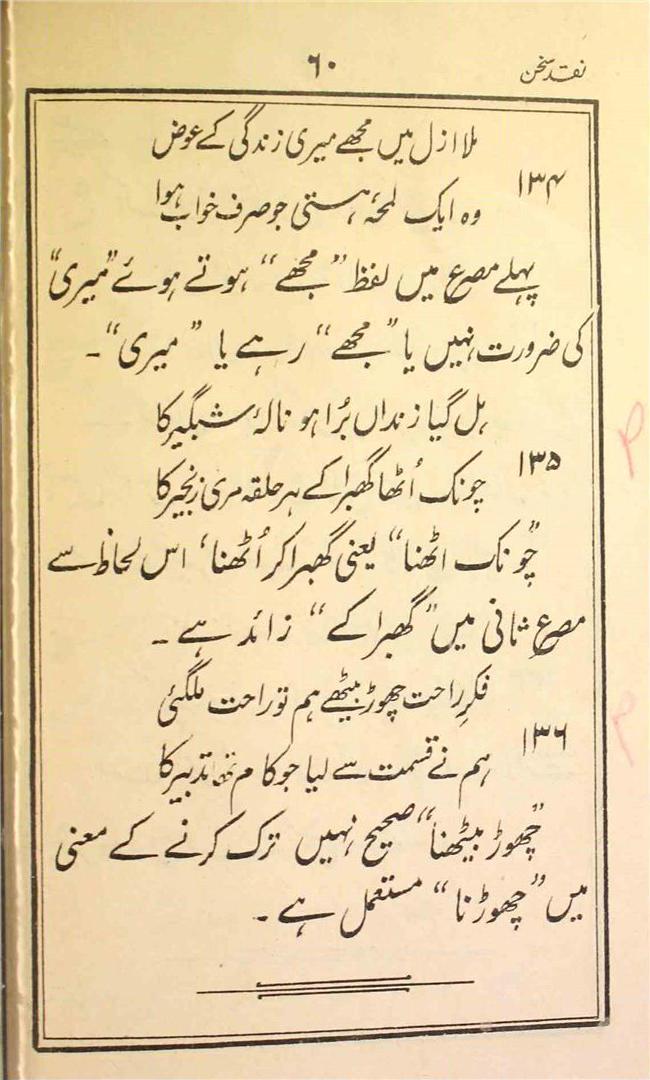 نقد سخن
۶۰
ملا ازل میں مجھے میری زندگی کے عوض
۱۳۴
وہ ایک لمحۂ ہستی جو صرف خواب ہوا
پہلے مصرع میں لفظ ”مجھے“ ہوتے ہوئے ”میری“
کی ضرورت نہیں یا ”مجھے“ رہے یا ”میری“۔
ہل گیا زنداں بُرا ہو نالۂ شبگیر کا
۱۳۵
چونک اُٹھا گھبرا کے ہر حلقہ مری زنجیر کا
”چونک اٹھنا“ یعنی گھبرا کر اُٹھنا، اس لحاظ سے
مصرعِ ثانی میں ”گھبرا کے“ زائد ہے۔
فکرِ راحت چھوڑ بیٹھے ہم تو راحت ملگئی
۱۳۶
ہم نے قسمت سے لیا جو کام تھا تدبیر کا
”چھوڑ بیٹھنا“ صحیح نہیں ترک کرنے کے معنی
میں ”چھوڑنا“ مستعمل ہے۔